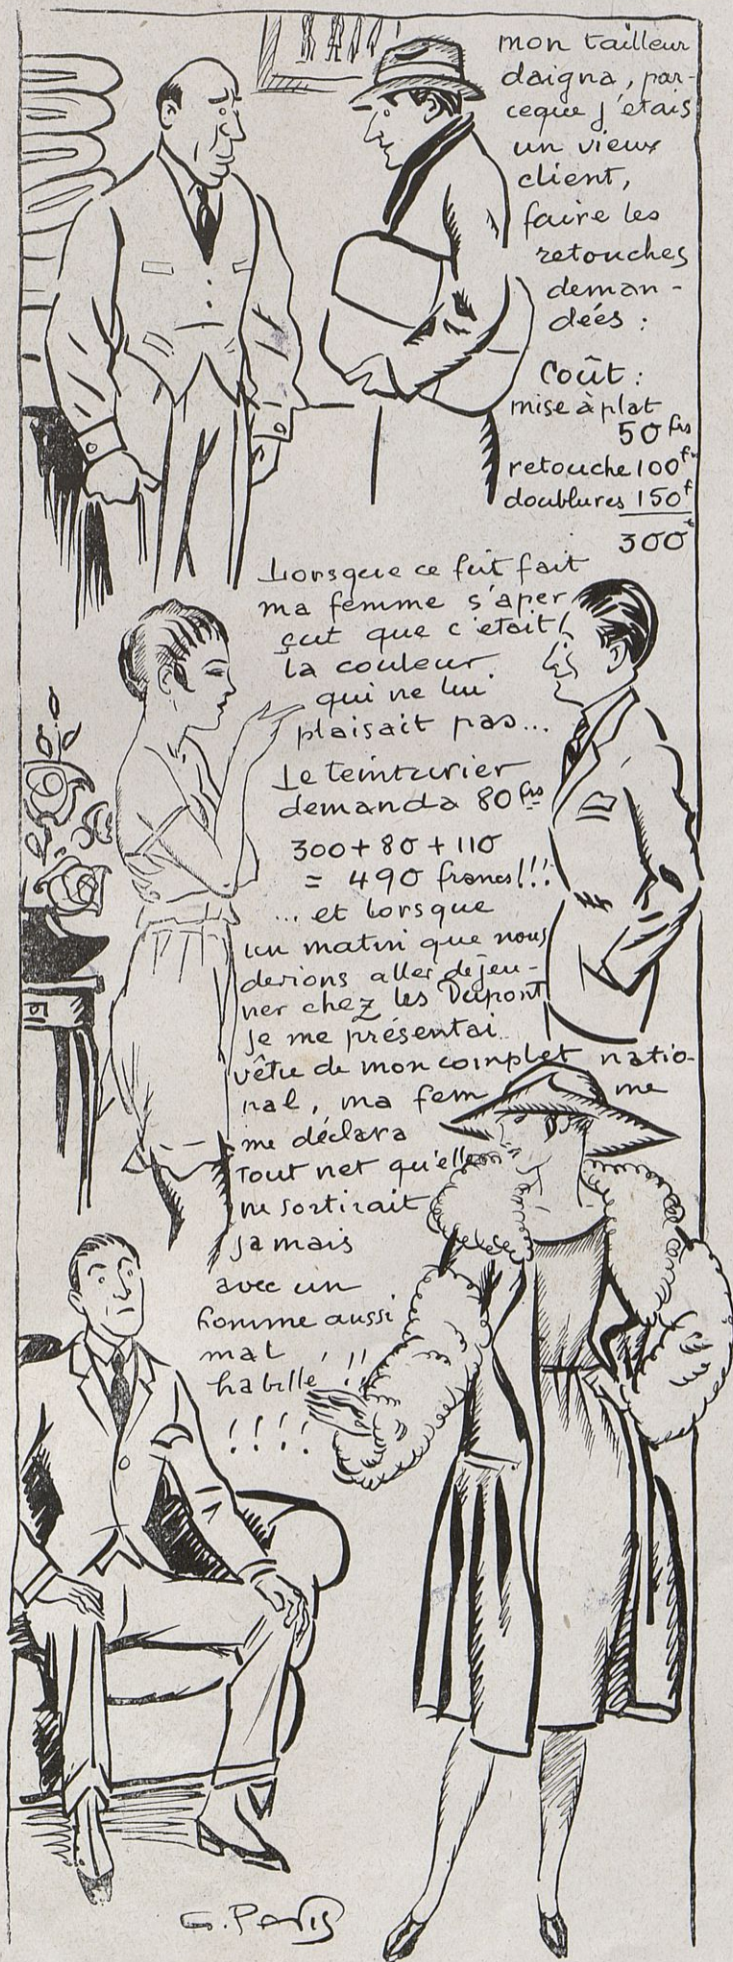 mon tailleur
daigna, par-
ceque j'étais
un vieux
client,
faire les
retouches
deman-
dées :
Coût :
mise à plat
50 frs
retouche 100 frs
doublures 150 f
300
Lorsque ce fût fait
ma femme s'aper
çut que c'était
la couleur
qui ne lui
plaisait pas...
Le teinturier
demanda 80 frs
300 + 80 + 110
= 490 francs!!!
... et lorsque
un matin que nous
devions aller déjeu-
ner chez les Dupont
je me présentai
vêtu de mon complet natio-
nal, ma femme
me déclara
tout net qu'elle
ne sortirait
jamais
avec un
homme aussi
mal
habillé !!!
!!!!
G. Paris